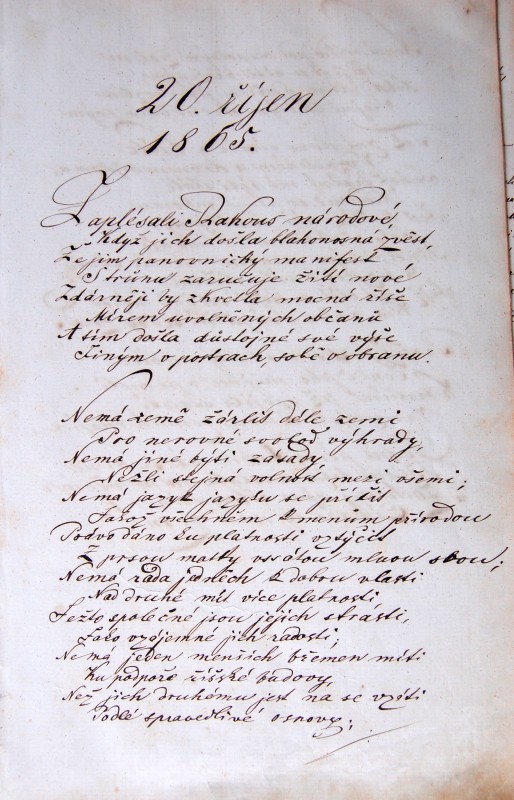 20. říjen
1865.
Zaplésali Rakous národové,
Když jich došla blahonosná zvěst,
Že jim panovnický manifest
S trůnu zaručuje žití nové
Zdárněji by zkvetla mocná říše
Mírem uvolněných občanů
A tim došla důstojné své výše
Jiným v postrach, sobě v obranu.
Nemá země žárlit déle zemi
Pro nerovné svobod výhrady,
Nemá jiné býti zásady,
Nežli stejná volnost mezi všemi;
Nemá jazyk jazyku se příčit
Jakož všechněm kmenům přírodou
Právo dáno ku platnosti vztýčit
Z prsou matky vssátou mluvu svou;
Nemá rada jedněch k dobru vlasti
Nad druhé mít více platnosti,
Ježto společné jsou jejich strasti,
Jako vzájemné jich radosti;
Nemá jeden menších břemen míti
Ku podpoře říšské budovy,
Než jich druhému jest na se vzíti
Podlé spravedlivé osnovy;